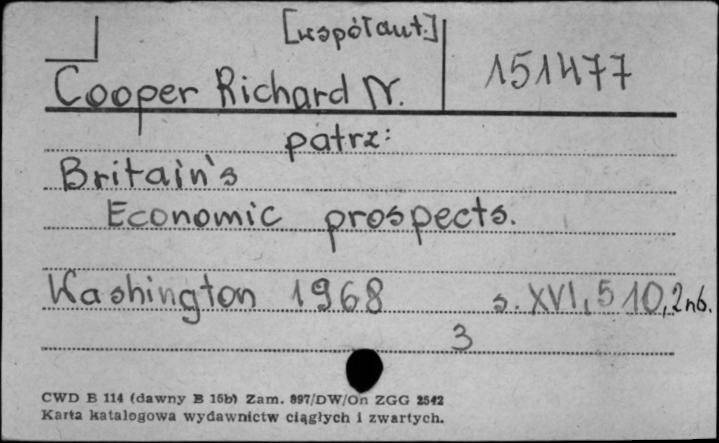 [współaut.]
Cooper Richard N. 151477
patrz:
Britain's
Economic prospects.
Washington 1968 s. XVI, 510, 2 nb.
3
CWD B 114 (dawny B 16b) Zam. 897/DW/On ZGG 2542
Karta katalogowa wydawnictw ciągłych i zwartych.